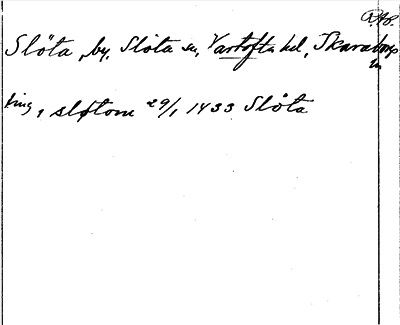 Slöta, by, Slöta sn, Vartofta hd, Skaraborgs
ln
ting, sløtom 29/1 1433 Slöta